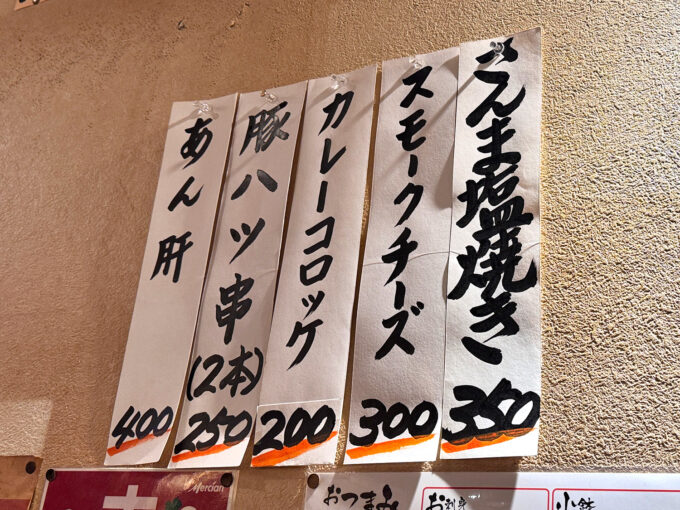 さんま塩焼き
350
スモークチーズ
300
カレーコロッケ
200
豚ハツ串(2本)
250
あん肝
400
Mercian
おつまみ
お刺身
小鉢